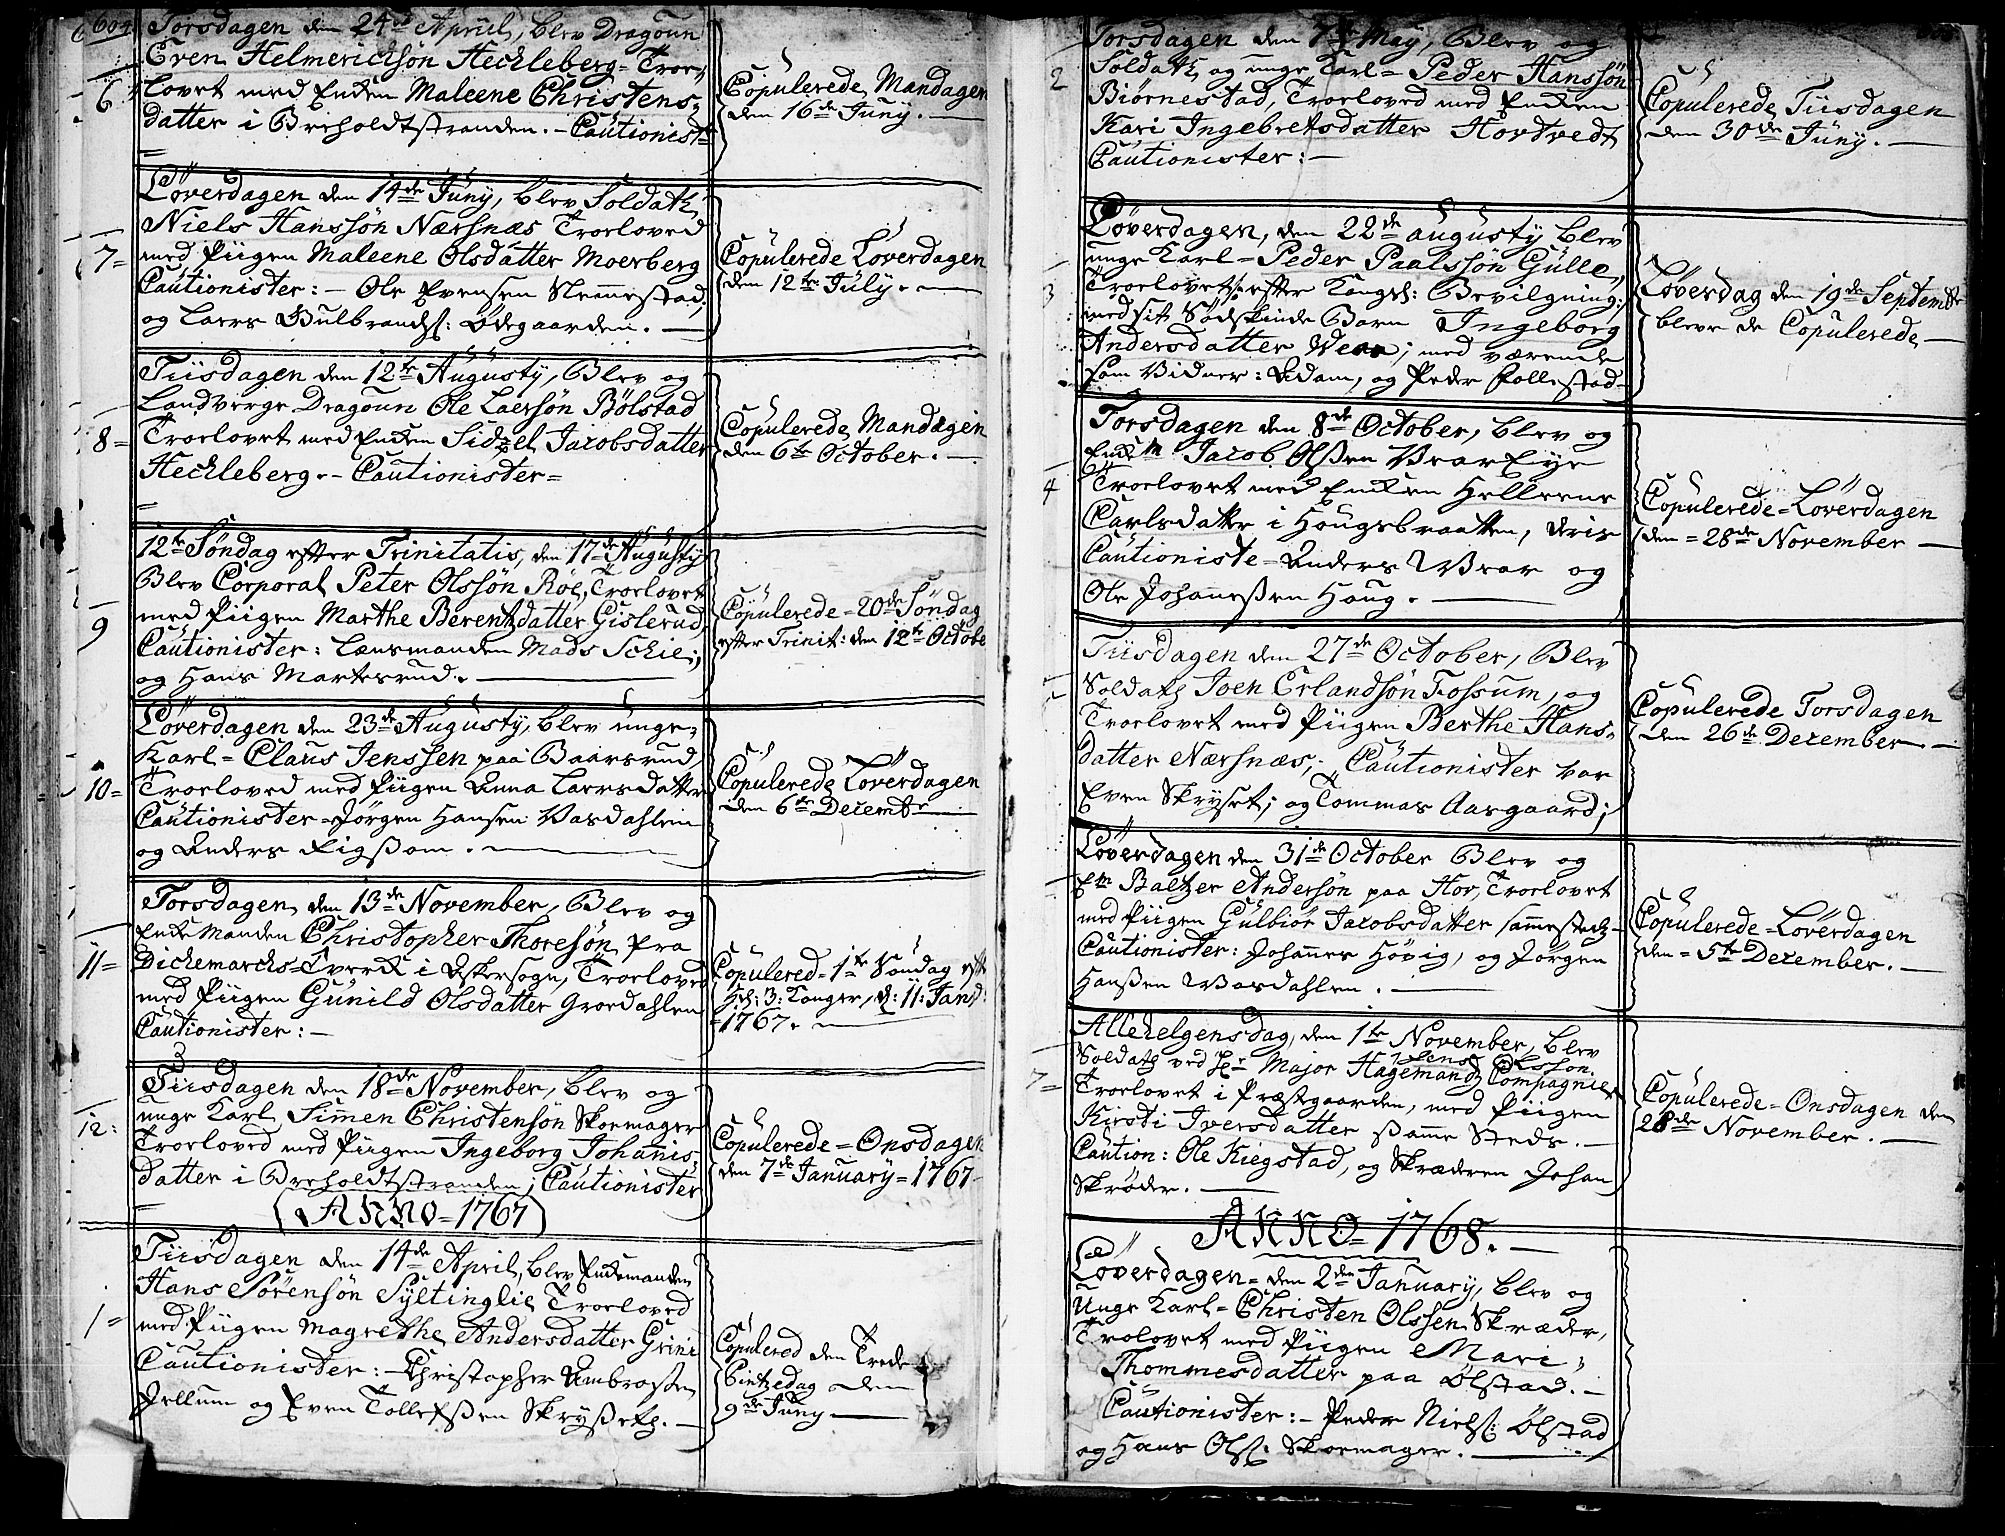 604
Torsdagen den 24de Apriil, blev Dragoun
Even Helmericksön Heckleberg = Troe-
6 lovet med Enken Maleene Christens-
datter i Breholdtstranden. - Cautionist=
Copulerede Mandagen
den 16de Juny. —
Löverdagen den 14de Juny, blev Soldath
Niels Hanssön Nærsnæs Troeloved
7= med Piigen Maleene Olsdatter Moerberg
Cautionister: - Ole Evensen Nemmestad;
og Laers Gulbrands: Ödegaarden. —
Copulerede Löverdagen
den 12te July. —
Tiisdagen den 12te Augusty, Blev og
Landverge Dragoun Ole Laersön Bölstad
8= Troelovet med Enken Sidzel Jacobsdatter
Heckleberg. - Cautionister=
Copulerede Mandagen
den 6te October. —
12te Söndag efter Trinitatis, den 17de Augusty
Blev Corporal Peter Olssön Roe, Troelovet
9 med Piigen Marthe Berentzdatter Gislerud
Cautionister: Lensmanden Mads Schie;
og Hans Martesrud. —
Copulerede = 20de Söndag
efter Trinit: den 12te Octobe
Löverdagen den 23de Augusty, blev unge
Karl = Claus Jenssen paa Baarsrud
10= Troeloved med Piigen Anna Laersdatter
Cautionister = Jörgen Hansen Vasdahlen
og Anders Figssom. —
Copulerede Löverdagen
den 6te Decemb=
Torsdagen den 13de November, Blev og
Enkemanden Christopher Thoresön fra
11= Dichemarchs = Verck i Askersogn, Troeloved
med Piigen Gunild Olsdatter Groedahlen
Cautionister: —
Copulered = 1te Söndag eft
Hel: 3: Konger, d: 11: Jan:
1767. —
Tiisdagen den 18de November, blev og
unge Karl Simen Christensön Skoemager
12: Troeloved med Piigen Ingeborg Johanis-
datter i Breholdtstranden; Cautionister
Copulerede = Onsdagen
den 7de January = 1767
ANNO = 1767
Tiisdagen den 14de April, blev Enkemanden
Hans Sörensön Syltinglie Troeloved
1= med Piigen Magrethe Andersdatter Grini
Cautionister: - Christopher Ambrossen
Jellum og Even Tollefssen Skrysseth. —
Copulered den Trede
Pintzedag den
9de Juny —
Torsdagen den 7de May, Blev og
2 Soldath og unge Karl = Peder Hanssön
Biörnestad, Troeloved med Enken
Kari Ingebretsdatter Hovtvedt
Cautionister: —
Copulerede Tiisdagen
den 30de Juny. —
Löverdagen, den 22de augusty blev
unge Karl = Peder Paalssön Gulle,
3 Troelovet /: efter Kongel: Bevilgning:/
med sit Södskinde Barn Ingeborg
Andersdatter Wear; med værende
som Vidner: Adam, og Peder Follestad
Löverdag den 19de Septembr
bleve de Copulerede —
Torsdagen den 8de October, blev og
Enkem Jacob Olssen Vear Eye
4 Troelovet med Enken Helleene
Carlsdatter i Hougsbraatten, deris
Cautioniste = Anders Vear og
Ole Johannessen Houg. —
Copulerede = Löverdagen
den = 28de November —
Tiisdagen den 27de October, Blev
Soldath Joen Erlandsön Fossum, og
Troelovet med Piigen Berthe Hans-
datter Nærsnæs; Cautionister var
Even Skryset; og Tommas Aasgaard;
Copulerede Torsdagen
den 26de December —
Löverdagen den 31de October Blev og
Em Baltzer Andersön paa Hov, Troelovet
med Piigen Gulbiör Jacobsdatter sammesteds
Cautionister: Johannes Hövig, og Jörgen
Hanssen Vasdahlen. —
Copulerede = Löverdagen
den = 5te December. —
Allehelgensdag, den 1te November, blev
Jens Olsson.
Soldath ved Hr Major Hagemands Compagnie
7= Troelovet i Præstgaarden, med Piigen
Kirsti Iversdatter samme Steds. —
Caution: Ole Kiegstad, og Skræderen Johan
Skröder. —
Copulerede = Onsdagen den
28de November. —
ANNO = 1768. —
Löverdagen = den 2den January, blev og
Unge Karl = Christen Olssen Skræder,
Trolovet med Piigen Mari
Thommesdatter paa Ölstad. —
Cautionister: - Peder Niels: Ölstad
og Hans Ols: Skoemager. —